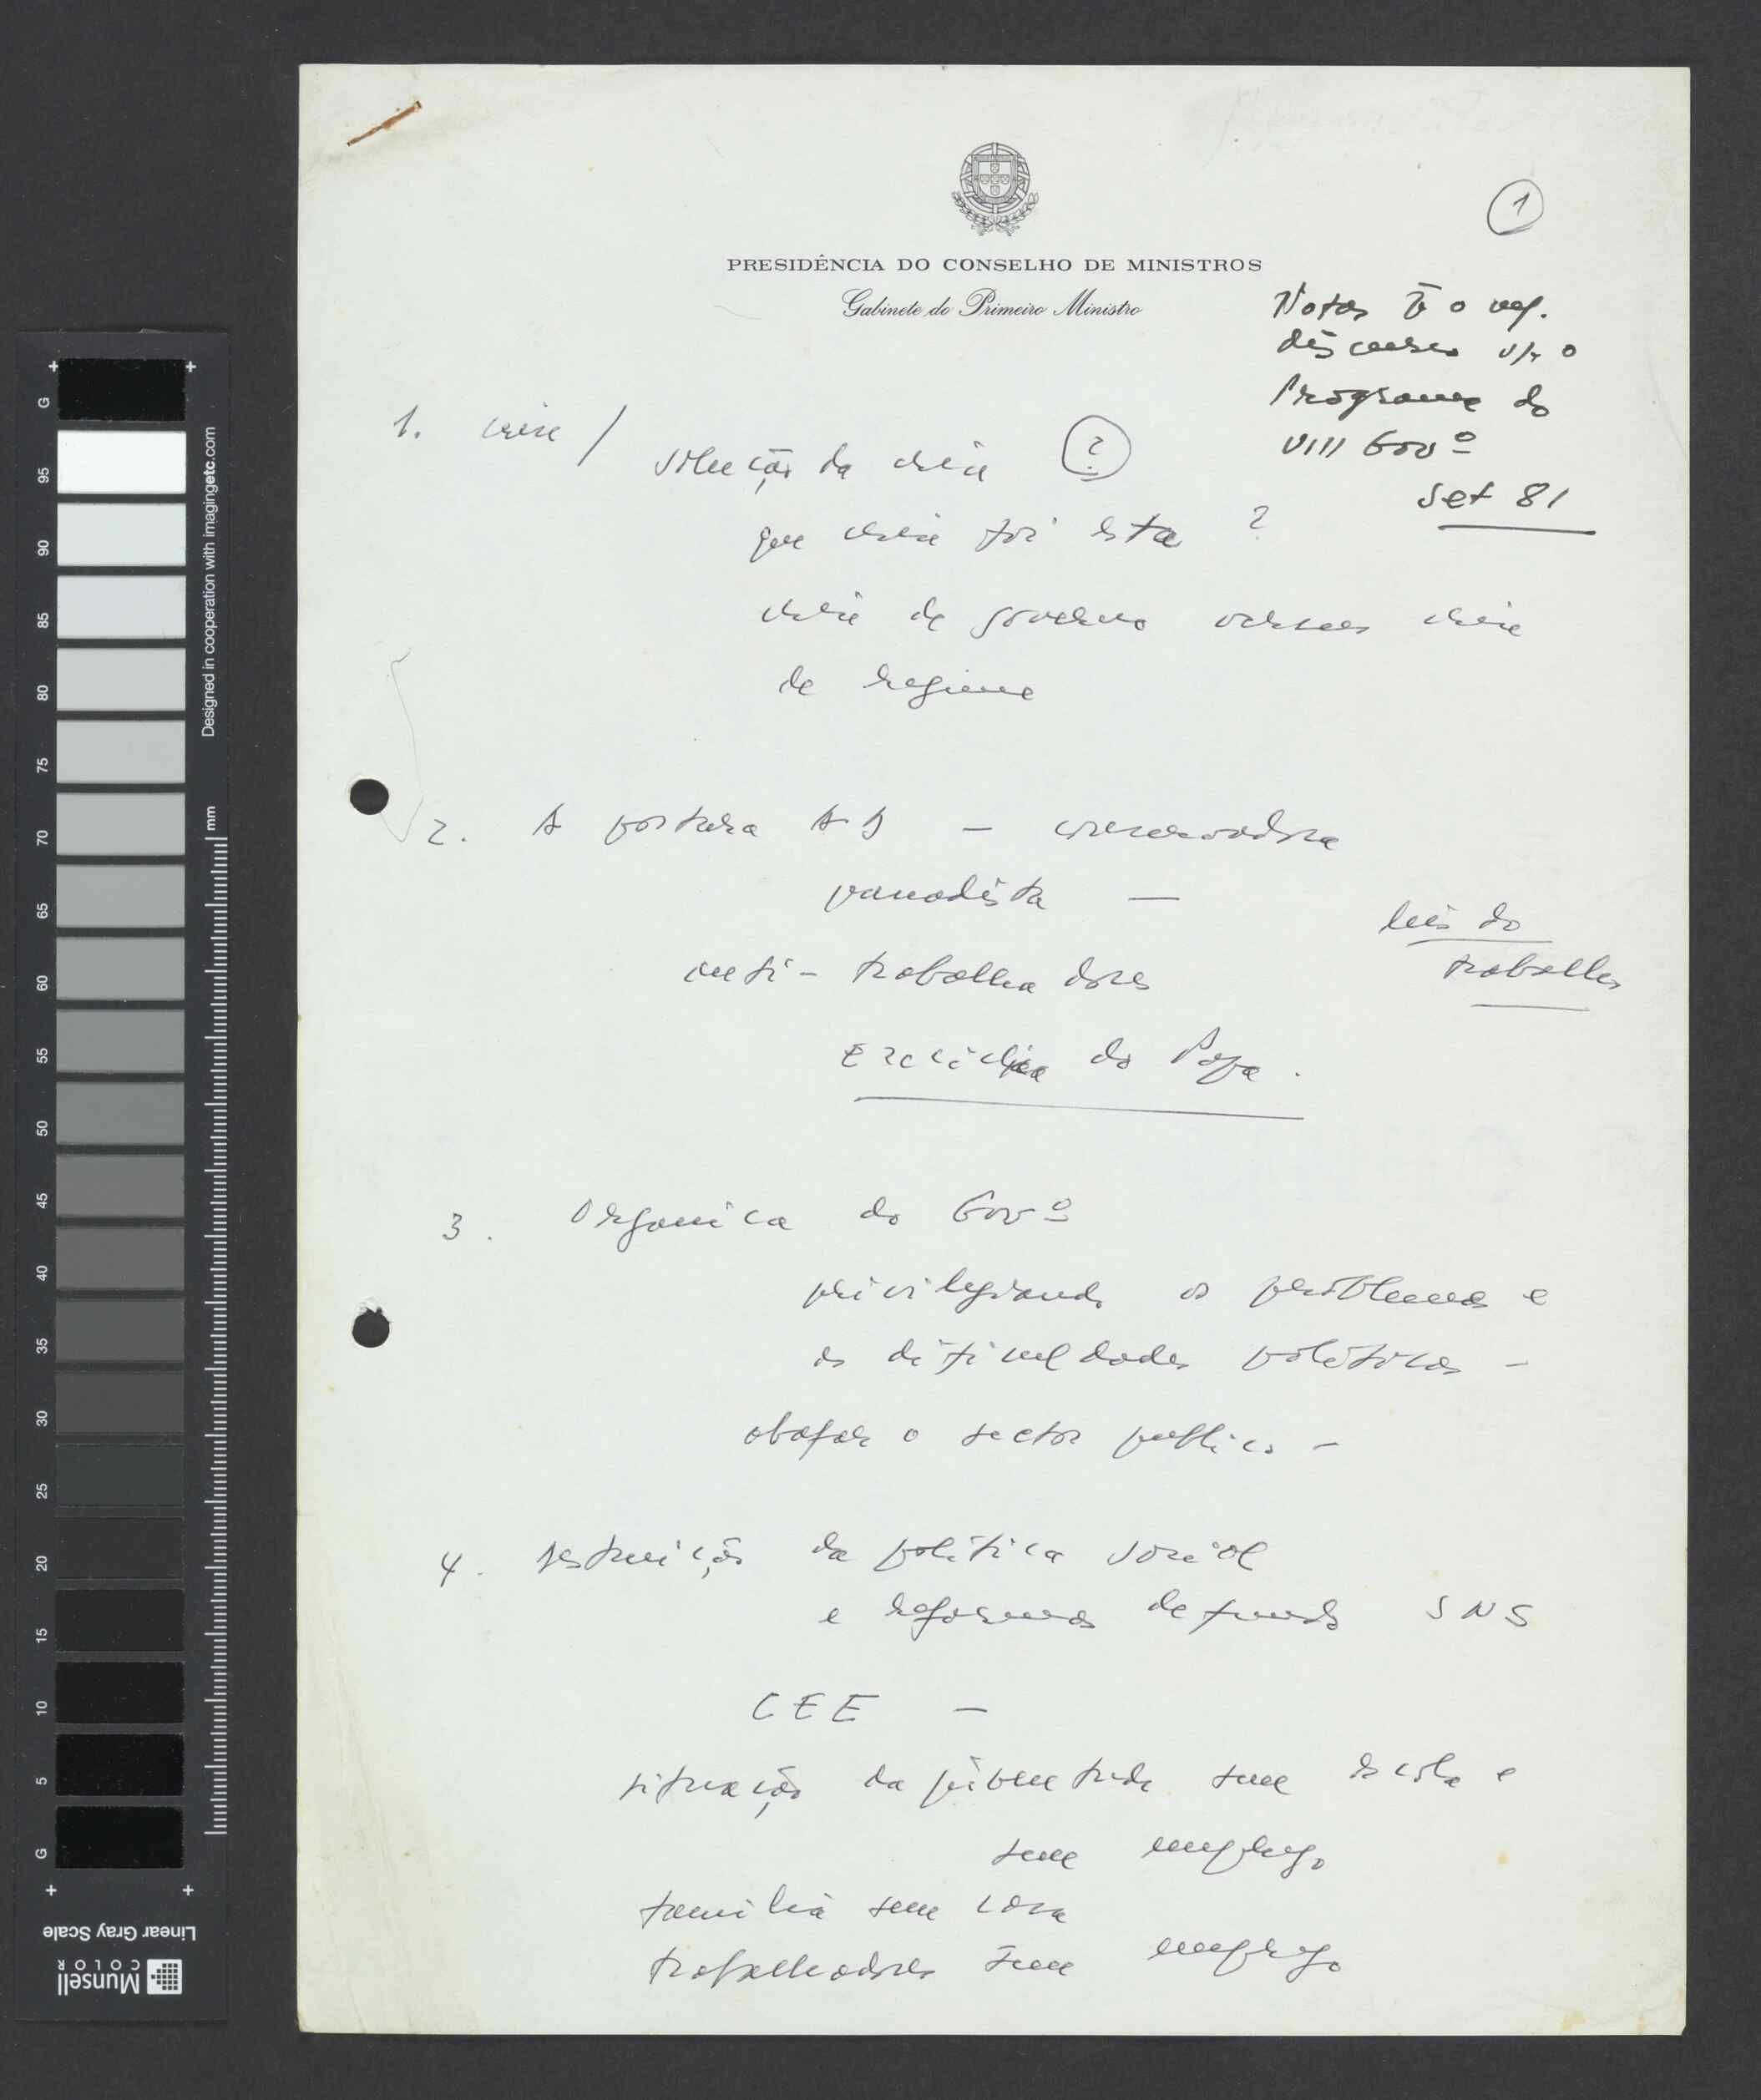 1
PRESIDÊNCIA DO CONSELHO DE MINISTROS
Gabinete do Primeiro Ministro
Notas o
discurso s/ o
Programa do
VIII Govº
Set 81
1. crise /
solução da crise ?
que crise foi esta ?
crise de governo versus crise
de regime
2. A postura AD — conservadora
anti-trabalhadores
leis do
trabalho
Encíclica do Papa.
3. Organica do Govº
privilegiando os problemas e
as dificuldades políticas —
abafar o sector publico —
4. destruição da política social
e reformas de fundo SNS
CEE —
situação da juventude sem escola e
sem emprego
familia sem casa
trabalhadores sem emprego
G
95
90
85
80
75
70
65
60
55
50
45
40
35
30
25
20
15
10
5
G
mm
Designed in cooperation with imagingetc.com
Linear Gray Scale
Munsell
COLOR